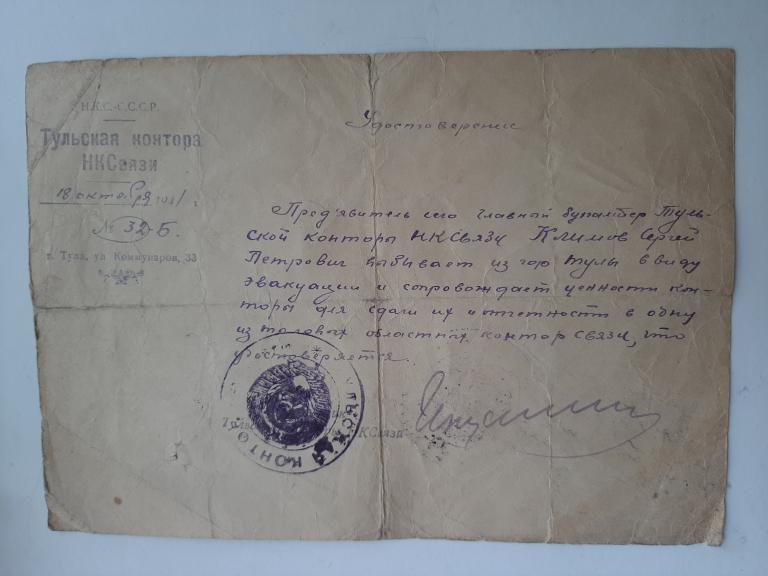 Н.К.С.-С.С.С.Р.
Тульская контора
НКСвязи
18 октября 1941 г.
№ 32-Б.
г. Тула, ул Коммунаров, 33
Удостоверение
Пред'явитель сего Главный бухгалтер Туль-
ской конторы НКСвязи Климов Сергей
Петрович выбывает из гор Тулы ввиду
эвакуации и сопровождает ценности кон-
торы для сдачи их и отчетности в одну
из тыловых областных контор связи, что
удостоверяется.
КСвязи
ТУЛЬСКАЯ КОНТО